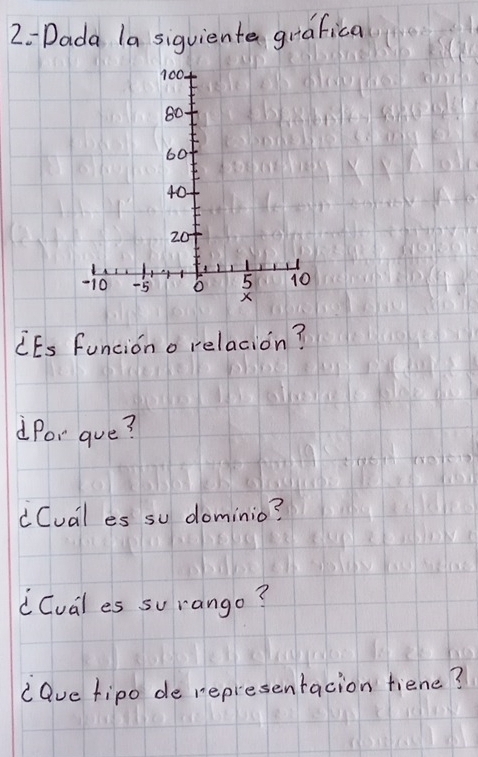 2.-Dada la siguiente gráfica
100
80
60
40
20
-10 -5 0 5 10
x
¿Es función o relación?
¿Por que?
¿Cuál es su dominio?
¿Cuál es su rango?
¿Que tipo de representacion tiene?